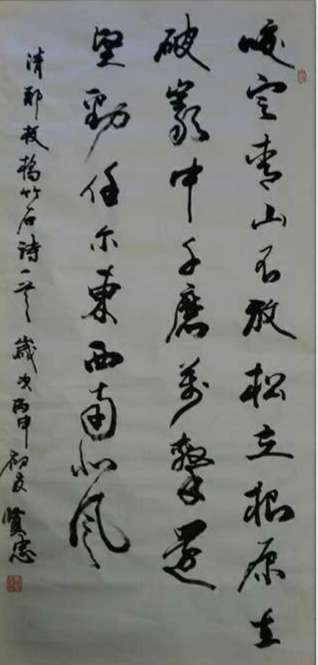 咬定青山不放松立根原在
破岩中千磨万击还
坚劲任尔东西南北风
清郑板桥竹石诗一首 岁次丙申初夏 贤忠